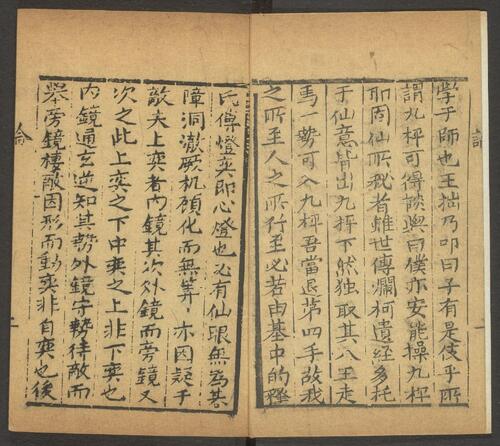 學乎師也王揣乃叩曰子有是伎乎所
謂九枰可得談與曰僕亦安能操九枰
耶周仙所戒者雖世傳爛柯遺經多托
于仙意皆出九枰下然独取其八王走
馬一势可入九枰吾當退第四手故我
之所至人之所行至必若由基中的釋
氏傳燈奕即心燈也必有仙眼無為碁
障洞澈厥机碩化而無筭亦因疑于
敵夫上奕者內鏡其次外鏡而旁鏡又
次之此上奕之下中奕之上非下奕也
內鏡通玄逆知其勢外鏡守勢待敵而
舉旁鏡棲敵因形而動奕非自奕也後